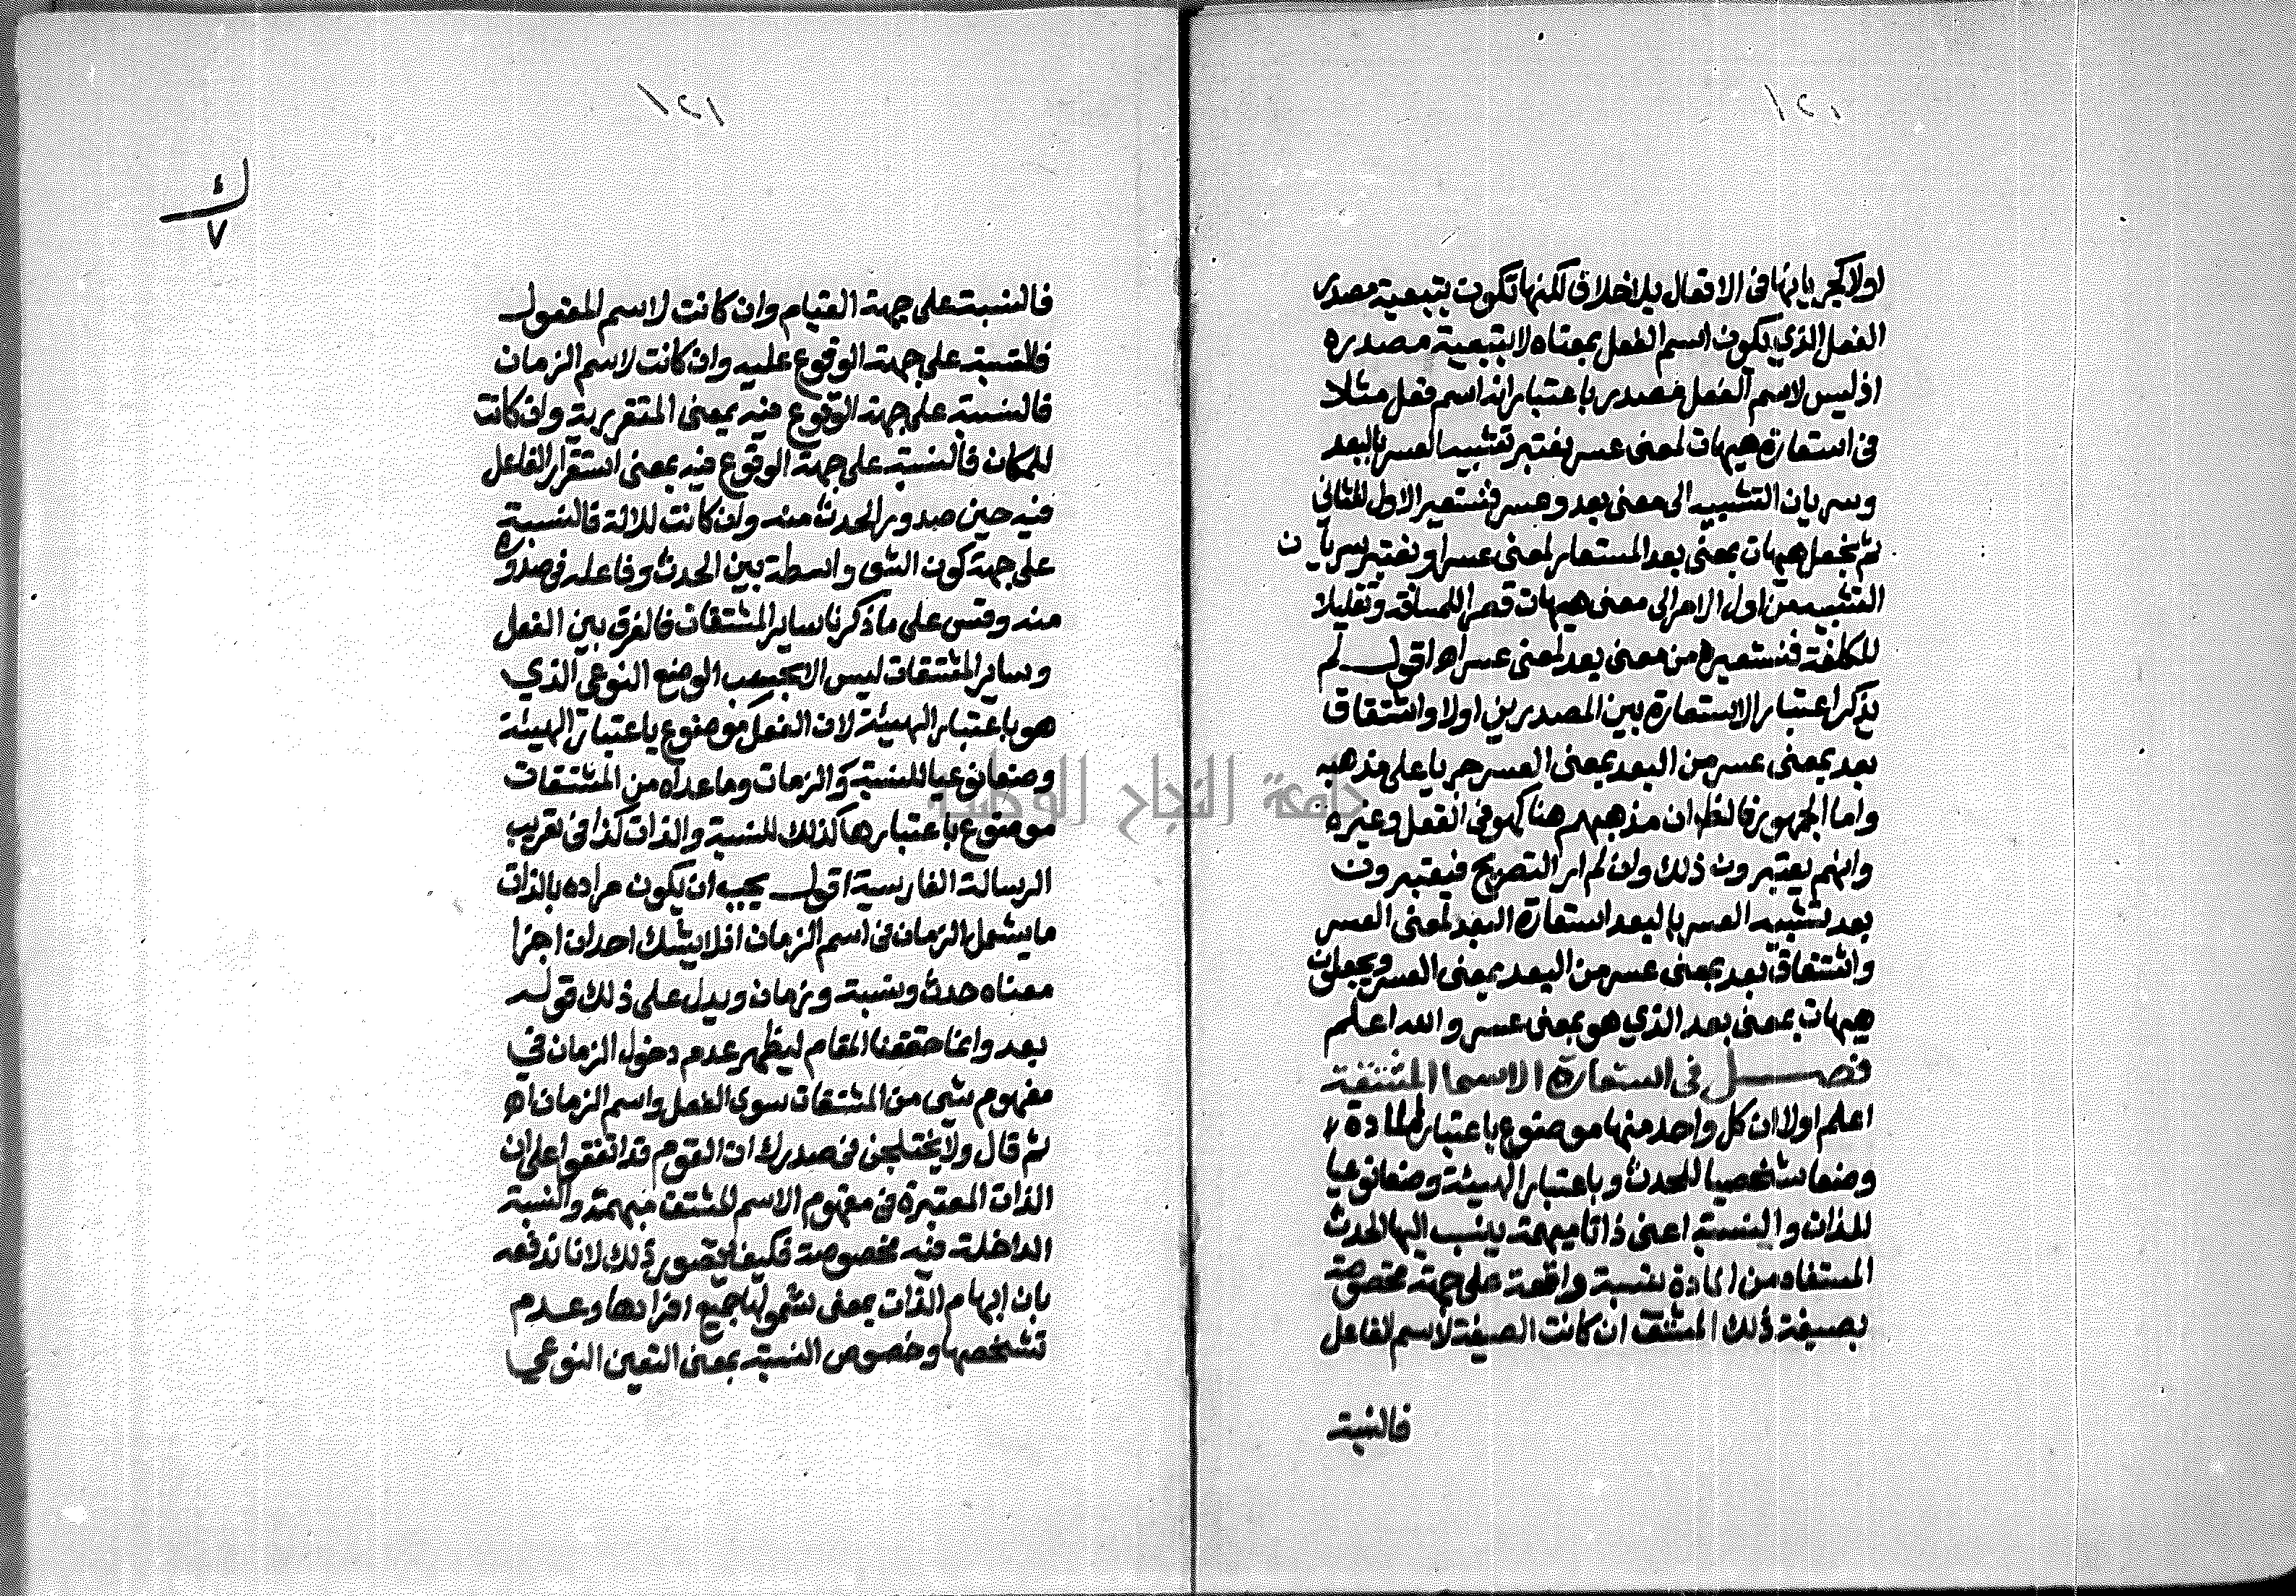 ١٢٠
اولا كجريانها في الافعال بلا خلاف لكنها تكون بتبعية مصدر
الفعل الذي يكون اسم الفعل بمعناه لا بتبعية مصدره
اذ ليس لاسم الفعل مصدر باعتبار انه اسم فعل مثلا
في استعارة هيهات لمعنى عسر يعتبر تشبيه العسر بالبعد
وسريان التشبيه الى معنى بعد وعسر فنستعير الاول للثاني
ثم نجعل هيهات بمعنى بعد المستعار لمعنى عسر او نعتبر سريان
التشبيه من اول الامر الى معنى هيهات قصرا للمسافة وتقليلا
للكلفة فنستعيره من معنى بعد لمعنى عسر اه اقول لم
يذكر اعتبار الاستعارة بين المصدرين اولا واشتقاق
بعد بمعنى عسر من البعد بمعنى العسر جريا على مذهبه
واما الجمهور فالظ ان مذهبهم هنا كهو في الفعل وغيره
وانهم يعتبرون ذلك وان لم ار التصريح فيعتبرون
بعد تشبيه العسر بالبعد استعارة البعد لمعنى العسر
واشتقاق بعد بمعنى عسر من البعد بمعنى العسر ويجعلون
هيهات بمعنى بعد الذي هو بمعنى عسر والله اعلم
فصل في استعارة الاسما المشتقة
اعلم اولا ان كل واحد منها موضوع باعتبار المادة
وضعا شخصيا للحدث وباعتبار الهيئة وضعا نوعيا
للذات والنسبة اعني ذاتا مبهمة ينسب اليها الحدث
المستفاد من المادة نسبة واقعة على جهة مخصوصة
بصيغة ذلك المشتق ان كانت الصيغة لاسم الفاعل
فالنسبة
١٢١
ك
٧
فالنسبة على جهة القيام وان كانت لاسم المفعول
فالنسبة على جهة الوقوع عليه وان كانت لاسم الزمان
فالنسبة على جهة الوقوع فيه بمعنى المتقررية وان كانت
للمكان فالنسبة على جهة الوقوع فيه بمعنى استقرار الفاعل
فيه حين صدور الحدث منه وان كانت للالة فالنسبة
على جهة كون الشى واسطة بين الحدث وفاعله في صدوره
منه وقس على ما ذكرنا ساير المشتقات فالفرق بين الفعل
وساير المشتقات ليس الا بحسب الوضع النوعي الذي
هو باعتبار الهيئة لان الفعل موضوع باعتبار الهيئة
وضعا نوعيا للنسبة والزمان وما عداه من المشتقات
موضوع باعتبارها كذلك للنسبة والذات كذا في تعريب
الرسالة الفارسية اقول يجب ان يكون مراده بالذات
ما يشمل الزمان في اسم الزمان اذ لا يشك احد ان اجزا
معناه حدث ونسبة وزمان ويدل على ذلك قوله
بعد وانما حققنا المقام ليظهر عدم دخول الزمان في
مفهوم شى من المشتقات سوى الفعل واسم الزمان اه
ثم قال ولا يختلجن في صدرك ان القوم قد اتفقوا على ان
الذات المعتبرة في مفهوم الاسم المشتق مبهمة والنسبة
الداخلة فيه مخصوصة فكيف يتصور ذلك لانا ندفعه
بان ابهام الذات بمعنى شمولها جميع افرادها وعدم
تشخصها وخصوص النسبة بمعنى التعين النوعي
جامعة النجاح الوطنية